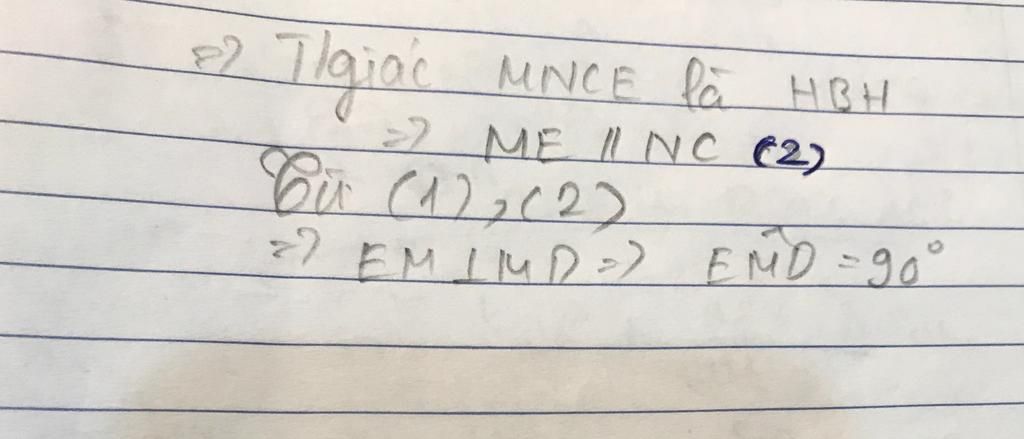 => T/giác MNCE là HBH
=> ME // NC (2)
Từ (1), (2)
=> EM ⊥ MD => EM̂D = 90°